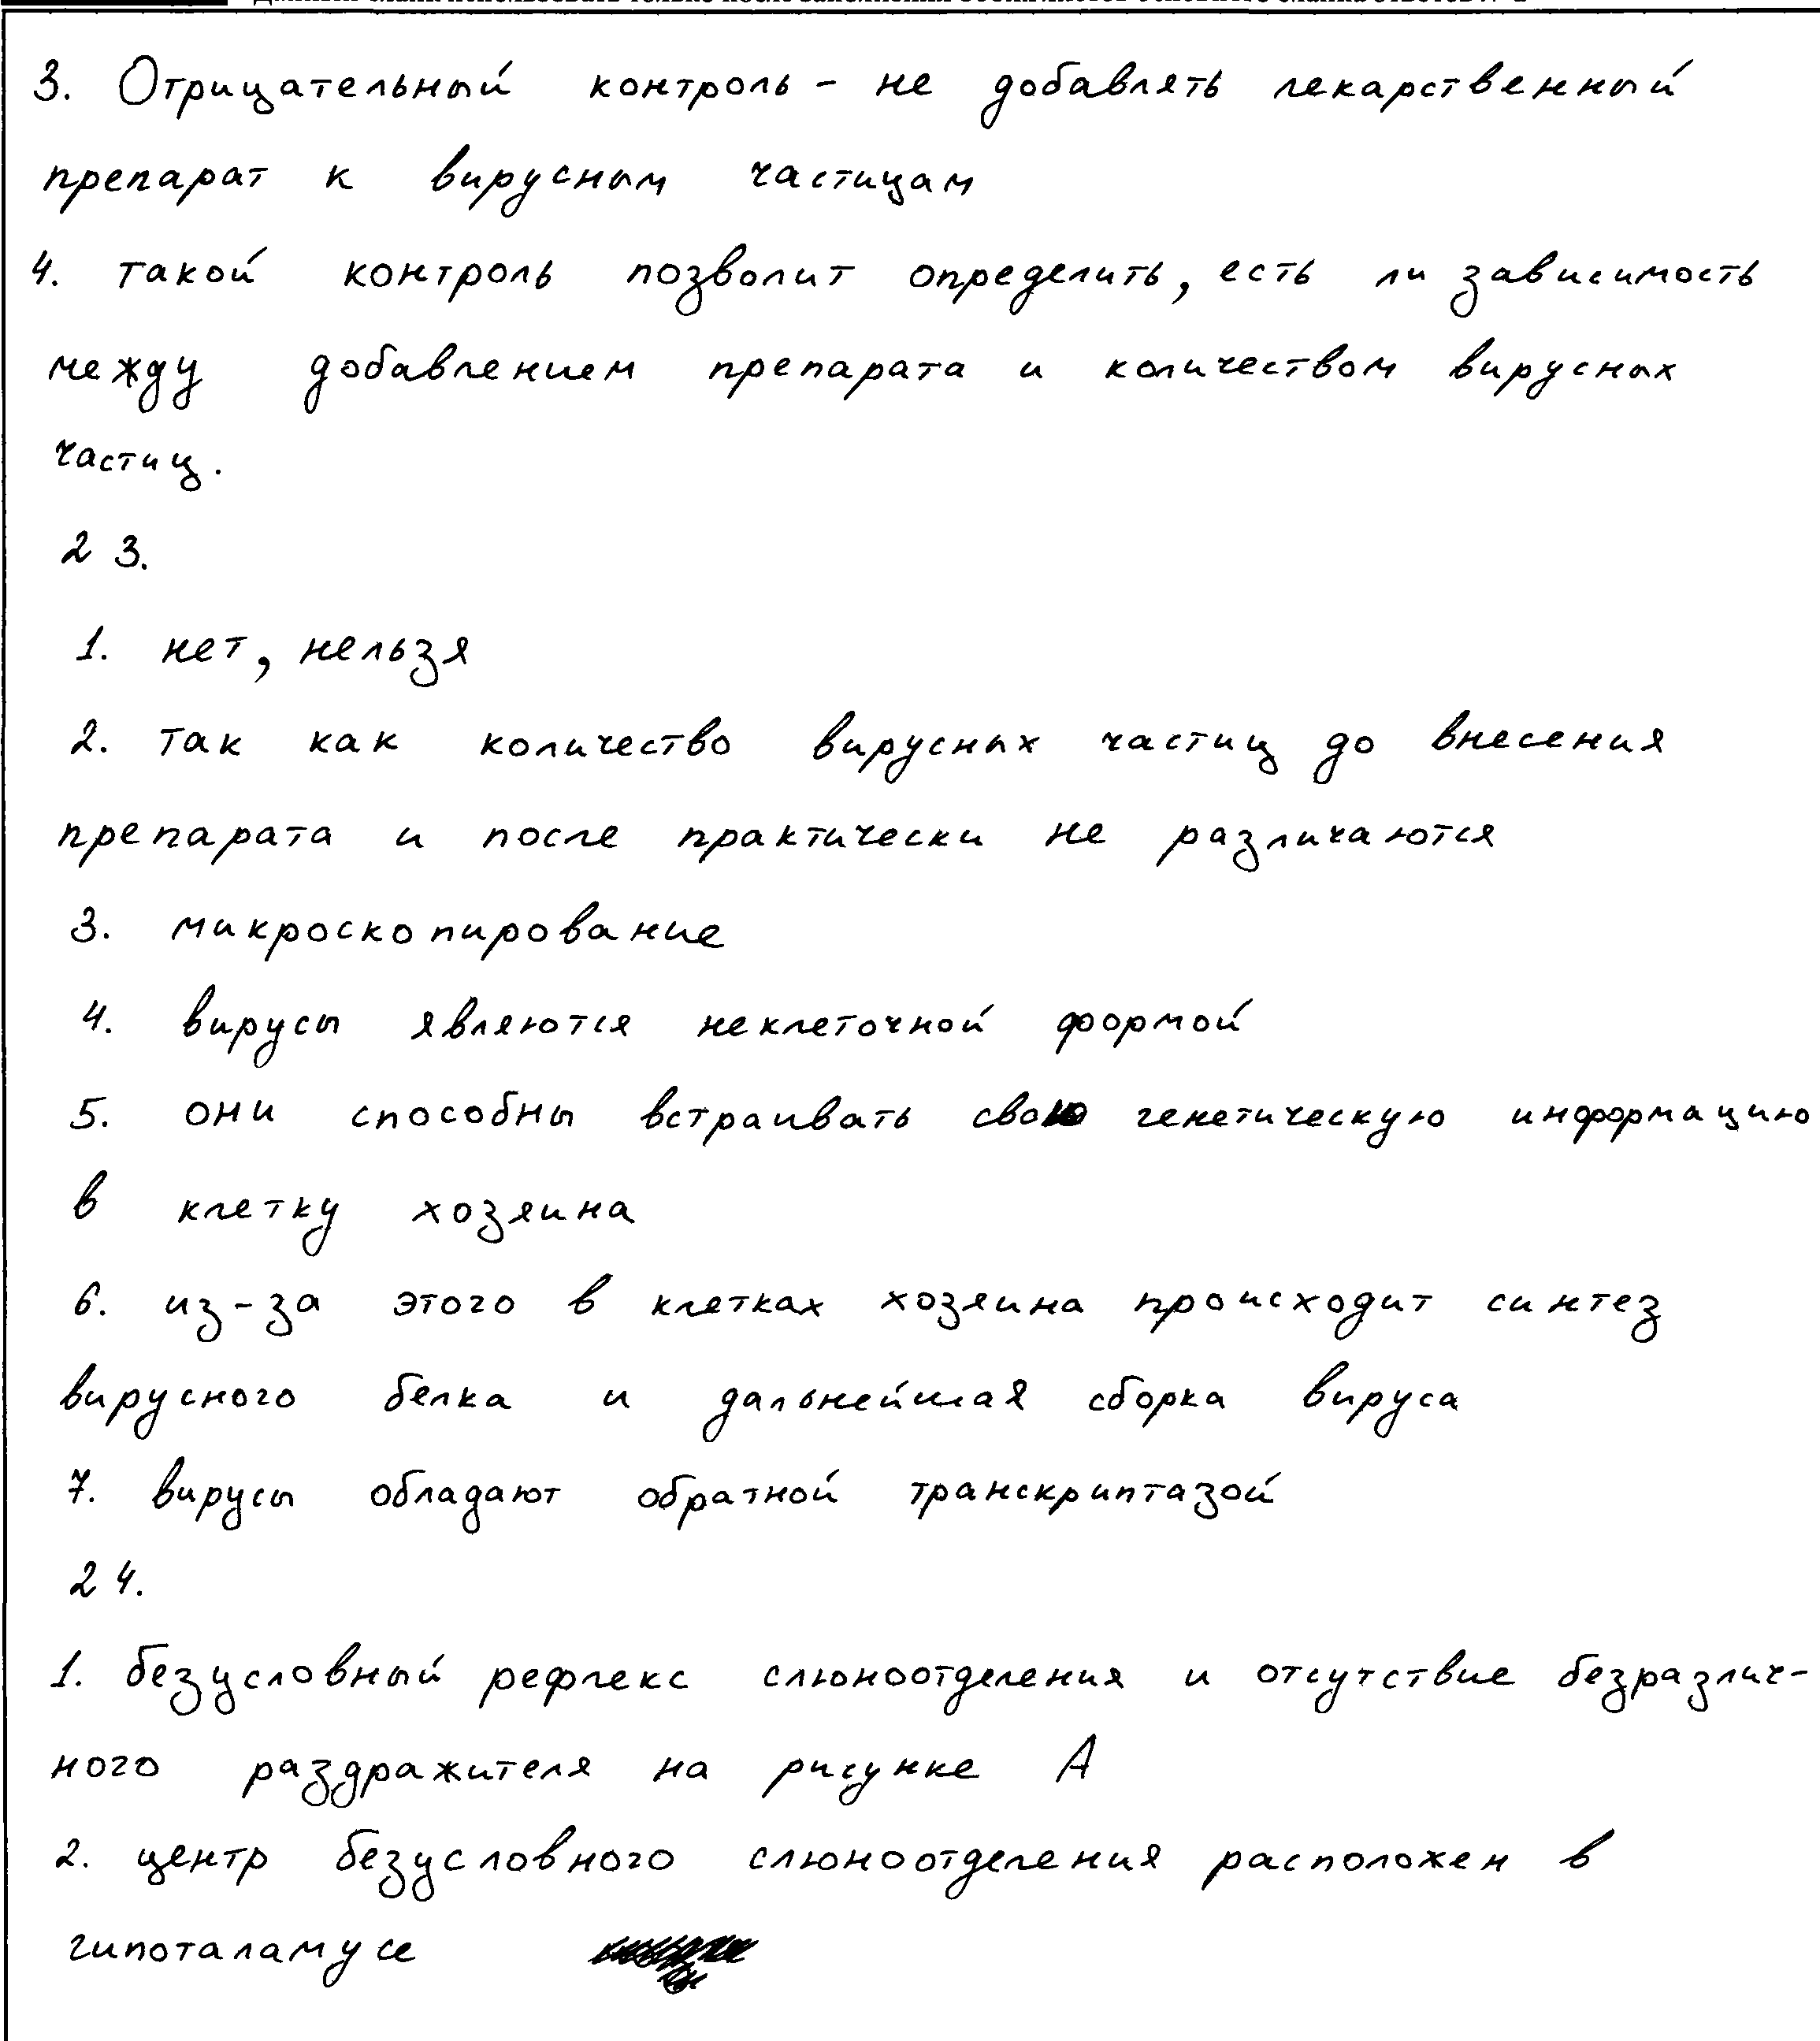 3. Отрицательный контроль - не добавлять лекарственный
препарат к вирусным частицам
4. такой контроль позволит определить, есть ли зависимость
между добавлением препарата и количеством вирусных
частиц.
23.
1. нет, нельзя
2. так как количество вирусных частиц до внесения
препарата и после практически не различаются
3. микроскопирование
4. вирусы являются неклеточной формой
5. они способны встраивать свою генетическую информацию
в клетку хозяина
6. из-за этого в клетках хозяина происходит синтез
вирусного белка и дальнейшая сборка вируса
7. вирусы обладают обратной транскриптазой
24.
1. безусловный рефлекс слюноотделения и отсутствие безразлич-
ного раздражителя на рисунке А
2. центр безусловного слюноотделения расположен в
гипоталамусе